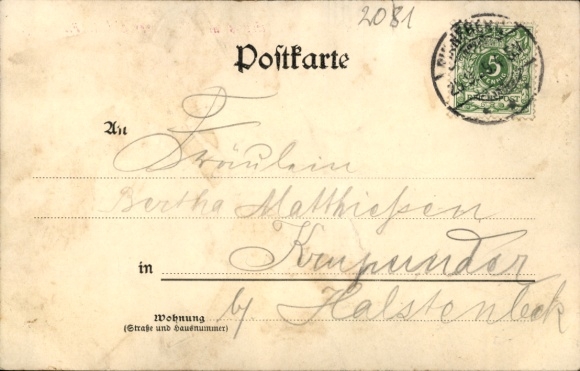 2081
Postkarte
5
An
Fräulein
Bertha Matthießen
in Krupunder
Wohnung
(Straße und Hausnummer)
by Halstenbeck